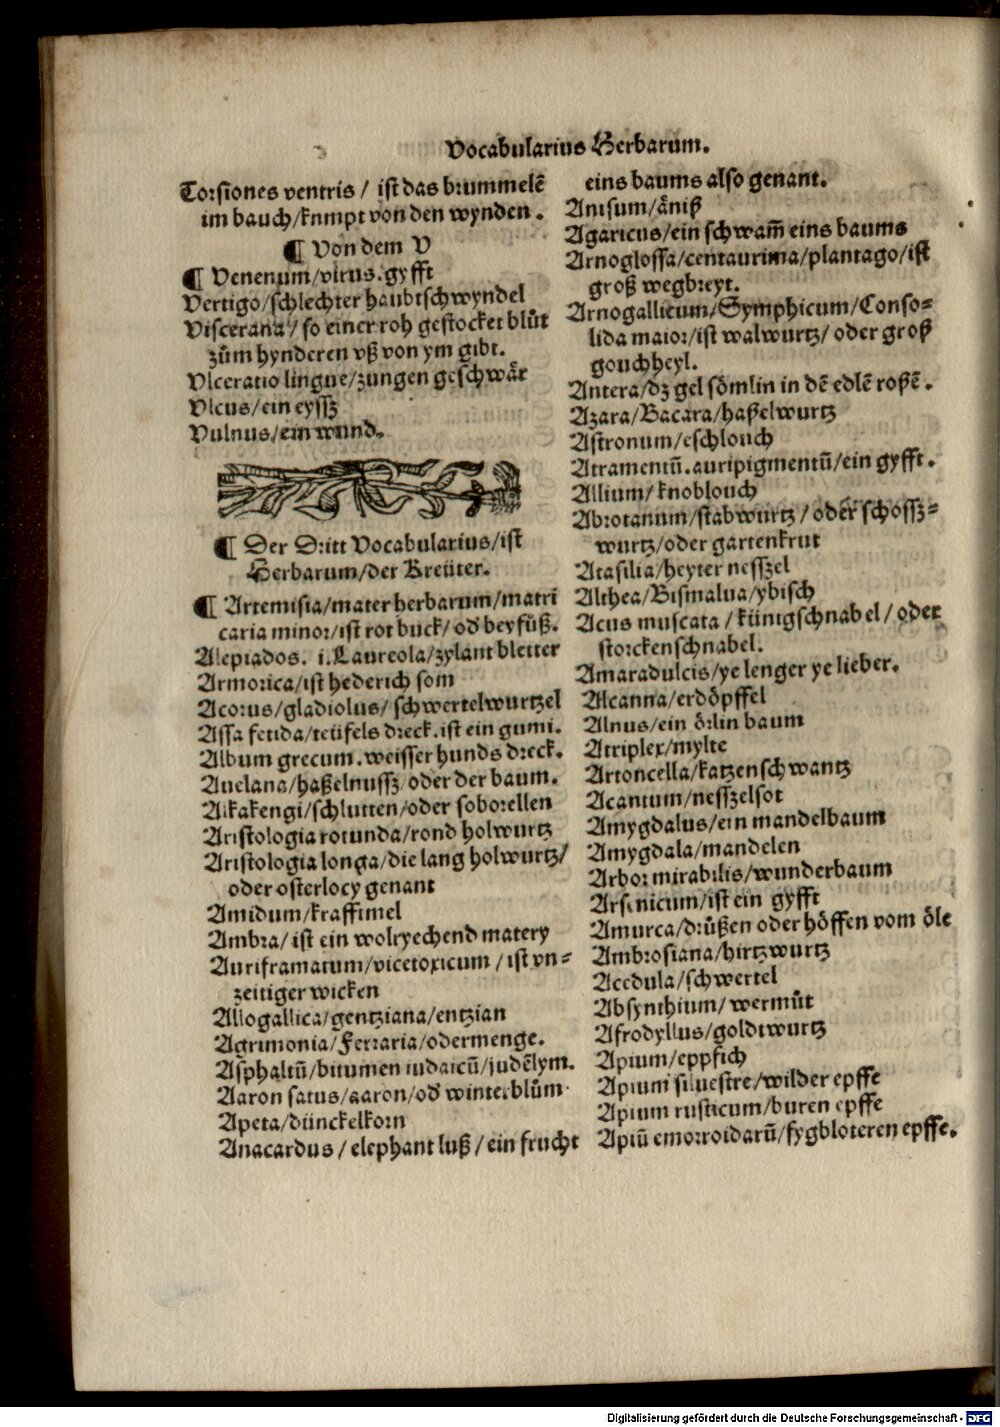 Vocabularius Herbarum.
Torsiones ventris / ist das brummelē
im bauch/knmpt von den wynden .
¶ Von dem V
¶ Venenum/virus.gyfft
Vertigo/schlechter haubtschwyndel
Viscerana / so einer roh gestocket blůt
zům hynderen vß von ym gibt.
Vlceratio lingue/zungen geschwår
Vlcus/ein eyssz
Vulnus/ein wund.
¶ Der Dritt Vocabularius/ist
Herbarum/der Kreüter.
¶ Artemisia/mater herbarum/matri
caria minor/ist rot buck/ od beyfůß.
Alepiados. i.Laureola/zylant bletter
Armorica/ist hederich som
Acorus/gladiolus/ schwertelwurtzel
Assa fetida/teüfels dreck.ist ein gumi.
Album grecum.weisser hunds dreck.
Auelana/haßelnussz/oder der baum.
Alkakengi/schlutten/oder soborellen
Aristologia rotunda/rond holwurtz
Aristologia longa/die lang holwurtz/
oder osterlocy genant
Amidum/kraffimel
Ambra/ ist ein wolryechend matery
Auriframatum/vicetoxicum / ist vn⸗
zeitiger wicken
Allogallica/gentziana/entzian
Agrimonia/Ferraria/odermenge.
Asphaltū/bitumen iudaicū/judēlym.
Aaron satus/aaron/od winter blům
Apeta/dünckelkorn
Anacardus / elephant luß / ein frucht
eins baums also genant.
Anisum/åniß
Agaricus/ein schwam̄ eins baums
Arnoglossa/centaurima/plantago/ist
groß wegbreyt.
Arnogallicum/Symphicum/Conso⸗
lida maior/ist walwurtz/ oder groß
gouchheyl.
Antera/dz gel sömlin in dē edlē roßē .
Azara/Bacara/haßelwurtz
Astronum/eschlouch
Atramentū.auripigmentū/ein gyfft.
Allium/knoblouch
Abrotanum/stabwurtz / oder schossz⸗
wurtz/oder gartenkrut
Atasilia/heyter nesszel
Althea/Bismalua/ybisch
Acus muscata / künigschnabel / oder
storckenschnabel.
Amaradulcis/ye lenger ye lieber.
Alcanna/erdöpffel
Alnus/ein örlin baum
Atriplex/mylte
Artoncella/katzenschwantz
Acantum/nesszelsot
Amygdalus/ein mandelbaum
Amygdala/mandelen
Arbor mirabilis/wunderbaum
Arsenicum/ist ein gyfft
Amurca/drůßen oder höffen vom öle
Ambrosiana/hirtzwurtz
Accdula/schwertel
Absynthium/ wermůt
Afrodyllus/goldtwurtz
Apium/eppfich
Apium siluestre/wilder epffe
Apium rusticum/buren epffe
Apiū emorroidarū/fygbloteren epffe.
Digitalisierung gefördert durch die Deutsche Forschungsgemeinschaft - DFG